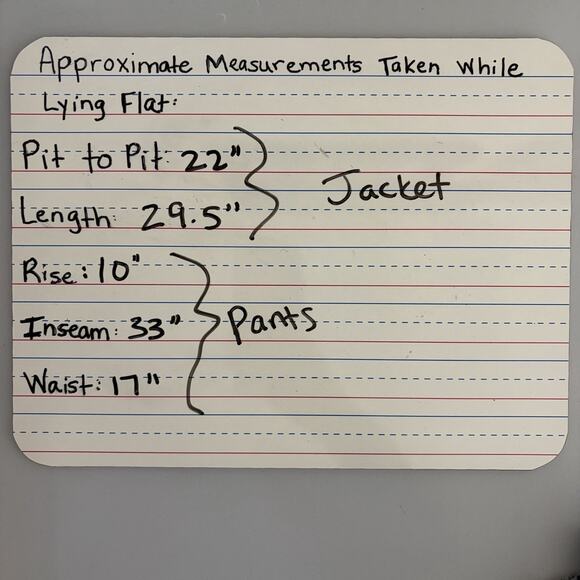 Approximate Measurements Taken While
Lying Flat:
Pit to Pit: 22"
Length: 29.5"
Jacket
Rise: 10"
Inseam: 33"
Waist: 17"
Pants